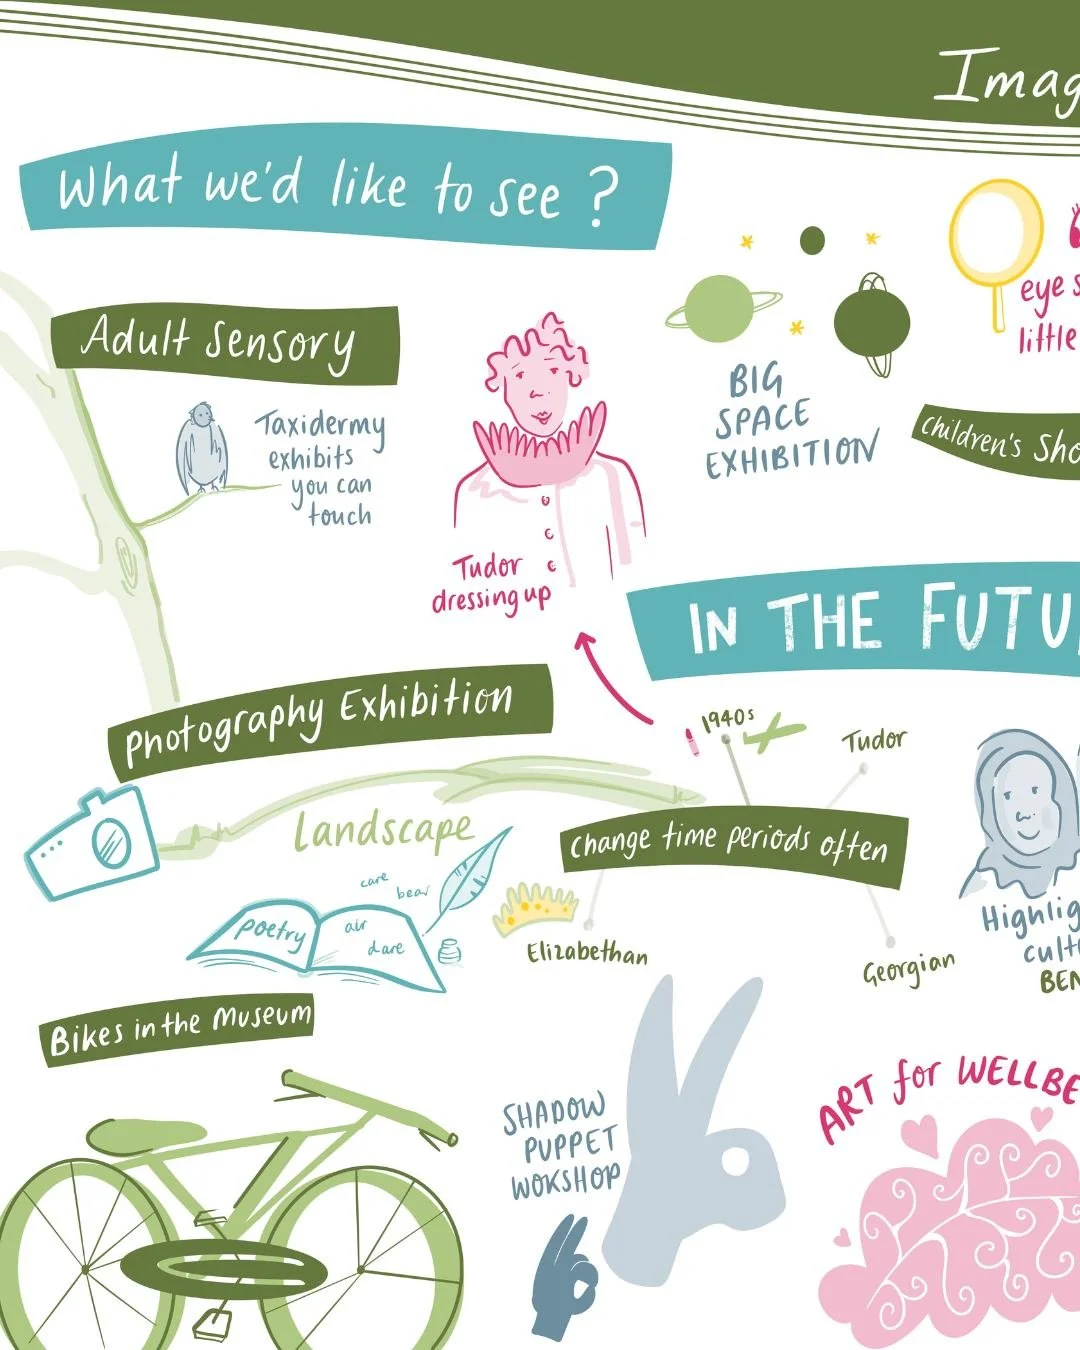 Imag
What we'd like to see ?
Adult Sensory
Taxidermy
exhibits
you can
touch
Tudor
dressing up
BIG
SPACE
EXHIBITION
eye s
little
Children's Sho
IN THE FUTU
Photography Exhibition
Landscape
poetry
care
bear
air
dare
1940s
Tudor
Change time periods often
Elizabethan
Georgian
Highlig
cult
BEN
Bikes in the Museum
SHADOW
PUPPET
WOKSHOP
ART for WELLBE